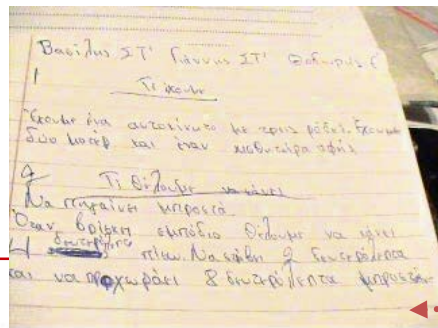 Βασίλης ΣΤ' Γιάννης ΣΤ' Θοδωρής Ε
1
Τι έχουμε
Έχουμε ένα αυτοκίνητο με τρεις ρόδες. Έχουμε
δύο μοτέρ και έναν αισθητήρα αφής
2
Τι θέλουμε να κάνει
Να πηγαίνει μπροστά
Όταν βρίσκει εμπόδιο θέλουμε να κάνει
4 δευτερόλεπτα πίσω. Να στρίβει 2 δευτερόλεπτα
και να προχωράει 8 δευτερόλεπτα μπροστά.